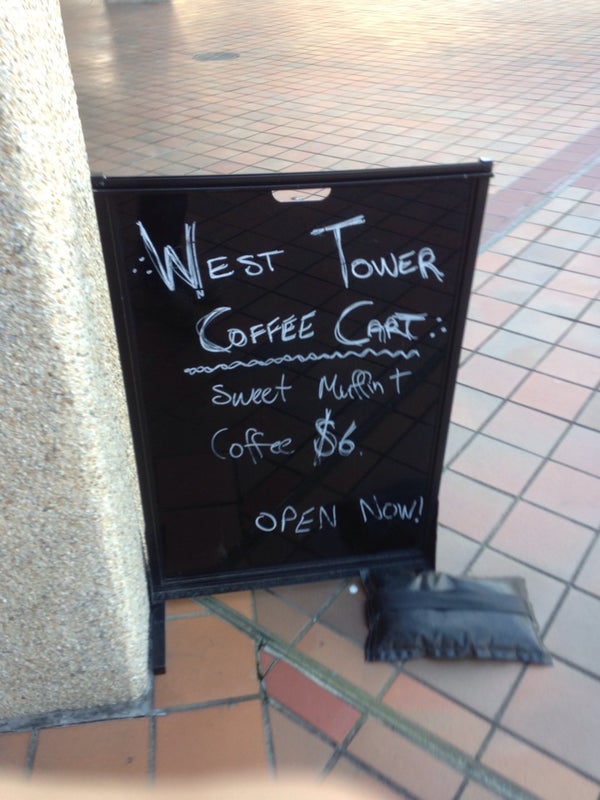 WEST TOWER
COFFEE CART
Sweet Muffin +
Coffee $6.
OPEN NOW!